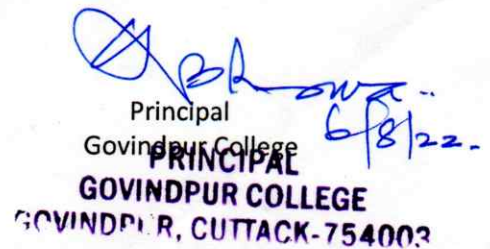 6/8/22.
Principal
Govindpur College
PRINCIPAL
GOVINDPUR COLLEGE
GOVINDPUR, CUTTACK-754003